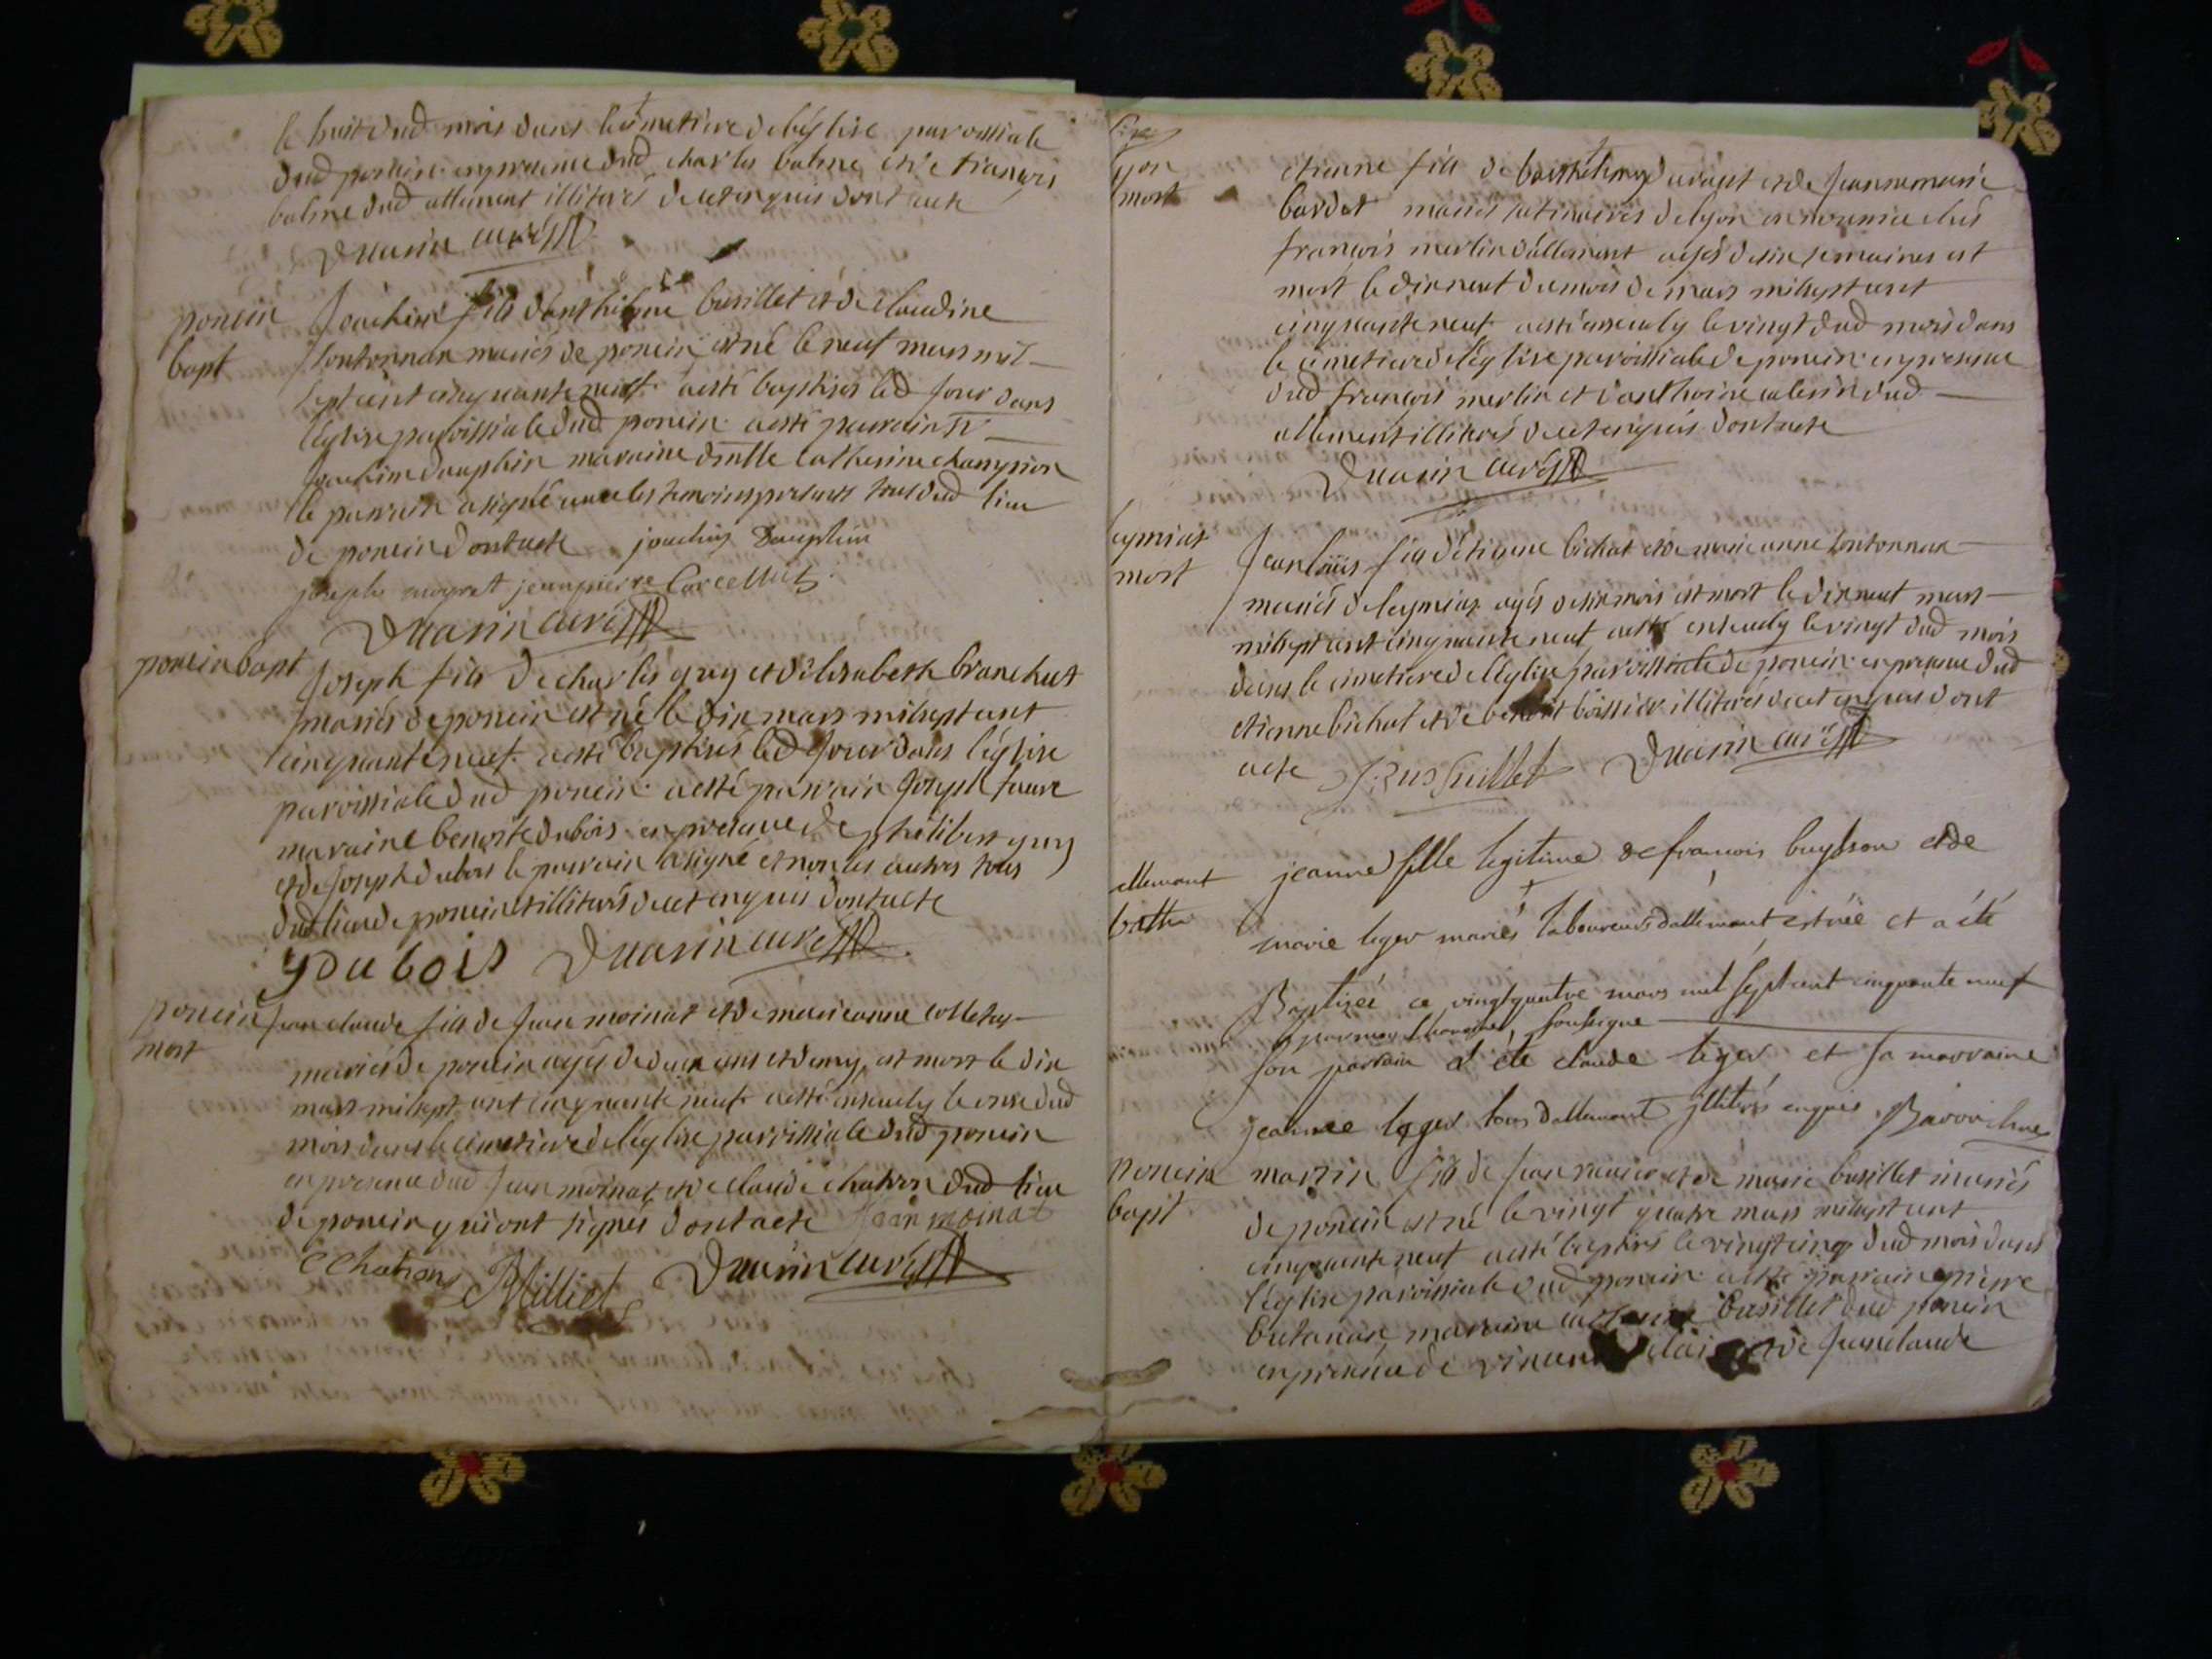 le huit dud mois dans le cimetiere de leglise paroissiale
dud poncin en presence dud charles balme et de francois
balme dud allement illiterés de cet enquis dont acte
Duarin curé
poncin
bapt
Joachim fils d'anthelme busillet et de claudine
tontonnan mariés de poncin est né le neuf mars mil
sept cent cinquante neuf a esté baptisés led jour dans
l'église paroissiale dud poncin a esté parrain sr
Joachim dauphin maraine dmlle catherine champion
le parrain a signé avec les temoins presents tous dud lieu
de poncin dont acte joachim Dauphin
joseph jeanpierre
Duarin curé
poncin bapt
Joseph fils de charles guy et d'elisabeth branchut
mariés de poncin est né le dix mars mil sept cent
cinquante neuf a esté baptisés led jour dans l'église
paroissiale dud poncin a esté parrain Joseph
maraine benoite dubois en presence de philibert guy
et de Joseph dubois le parrain a signé et non les autres tous
dud lieu de poncin illiterés de cet enquis dont acte
y Du bois Duarin curé
poncin
mort
Jean claude fils de Jean moinat et de marianne
mariés de poncin agés de deux ans et demy est mort le dix
mars mil sept cent cinquante neuf a esté ensevely le onze dud
mois dans le cimetiere de l'église paroissiale dud poncin
en presence dud Jean moinat et de claude chatron dud lieu
de poncin qui ont signés dont acte Jean moinat
C Chatron Milliet Duarin curé
lyon
mort
etienne fils de barthelemy durant et de Jeanne marie
bardet mariés satinaires de lyon en nourrice chés
françois merlin d'allement agés de six semaines est
mort le dix neuf du mois de mars mil sept cent
cinquante neuf a esté ensevely le vingt dud mois dans
le cimetiere de l'église paroissiale de poncin en presence
dud françois merlin et d'anthoine dud
allement illiterés de cet enquis dont acte
Duarin curé
leymiat
mort
Jean louis fils d'etienne bichat et de marie anne tontonnan
mariés de leymiat agés de six mois est mort le dix neuf mars
mil sept cent cinquante neuf a esté ensevely le vingt dud mois
dans le cimetiere de l'église paroissiale de poncin en presence dud
etienne bichat et de benoit illiterés de cet enquis dont
acte Duarin curé
allemant
jeanne fille legitime de francois buysson et de
marie leger mariés laboureurs d'allemant est née et a été
Baptizée ce vingt quatre mars mil sept cent cinquante neuf
par moy soussigné
son parrain a été claude leger et sa marraine
jeanne leger tous d'allemant illiterés enquis
poncin
bapt
martin fils de Jean et de marie busillet mariés
de poncin est né le vingt quatre mars mil sept cent
cinquante neuf a esté baptisés le vingt cinq dud mois dans
l'église paroissiale dud poncin a esté parrain pierre
maraine busillet dud poncin
en presence de vincent et de Jean claude